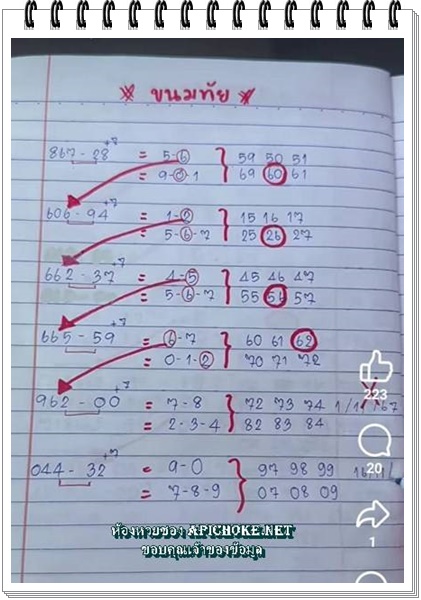 ขนมทัย
867-28 +7 = 5-6 } 59 50 51
= 9-0-1 69 60 61
606-94 +7 = 1-2 } 15 16 17
= 5-6-7 25 26 27
662-37 +7 = 4-5 } 45 46 47
= 5-6-7 55 56 57
665-59 +7 = 6-7 } 60 61 62
= 0-1-2 70 71 72
962-00 +7 = 7-8 } 72 73 74
= 2-3-4 82 83 84
044-32 +7 = 9-0 } 97 98 99
= 7-8-9 07 08 09
223
20
1
ห้องหวยซอง APICHOKE.NET
ขอบคุณเจ้าของข้อมูล